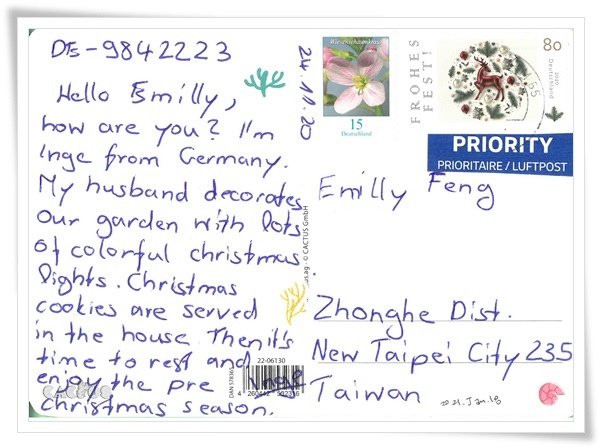 DE-9842223
24.11.20
Hello Emilly,
how are you? I'm
Inge from Germany.
My husband decorates
our garden with lots
of colorful christmas
lights. Christmas
cookies are served
in the house. Then it's
time to rest and
enjoy the pre
christmas season.
Inge
Wiesenschaumkraut
15
Deutschland
FROHES
FEST!
80
2020
Deutschland
55
PRIORITY
PRIORITAIRE / LUFTPOST
Emilly Feng
Zhonghe Dist.
New Taipei City 235
Taiwan
2021. Jan. 18
© CACTUS GmbH
22-06130
CACTUS